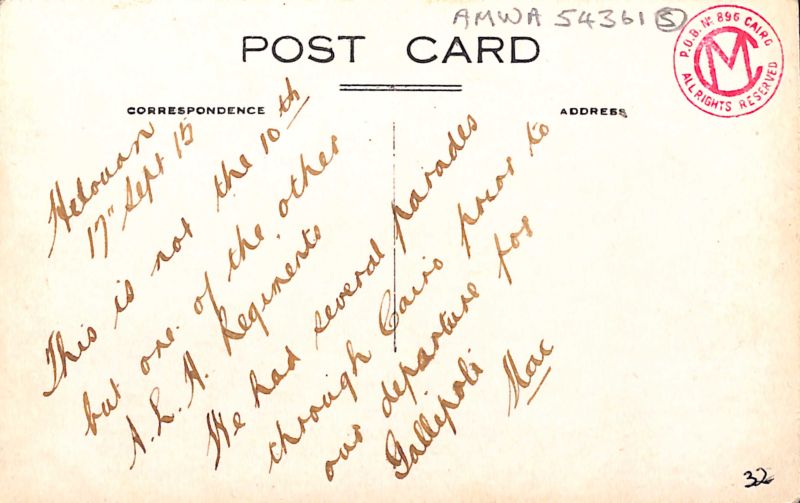 AMWA 54361 S
POST CARD
P.O.B. No. 896 CAIRO
CM
ALL RIGHTS RESERVED
CORRESPONDENCE
ADDRESS
Helouan
17" Sept 15
This is not the 10th
but one of the other
A.L.H. Regiments
We had several parades
through Cairo prior to
our departure for
Gallipoli
Mac
32